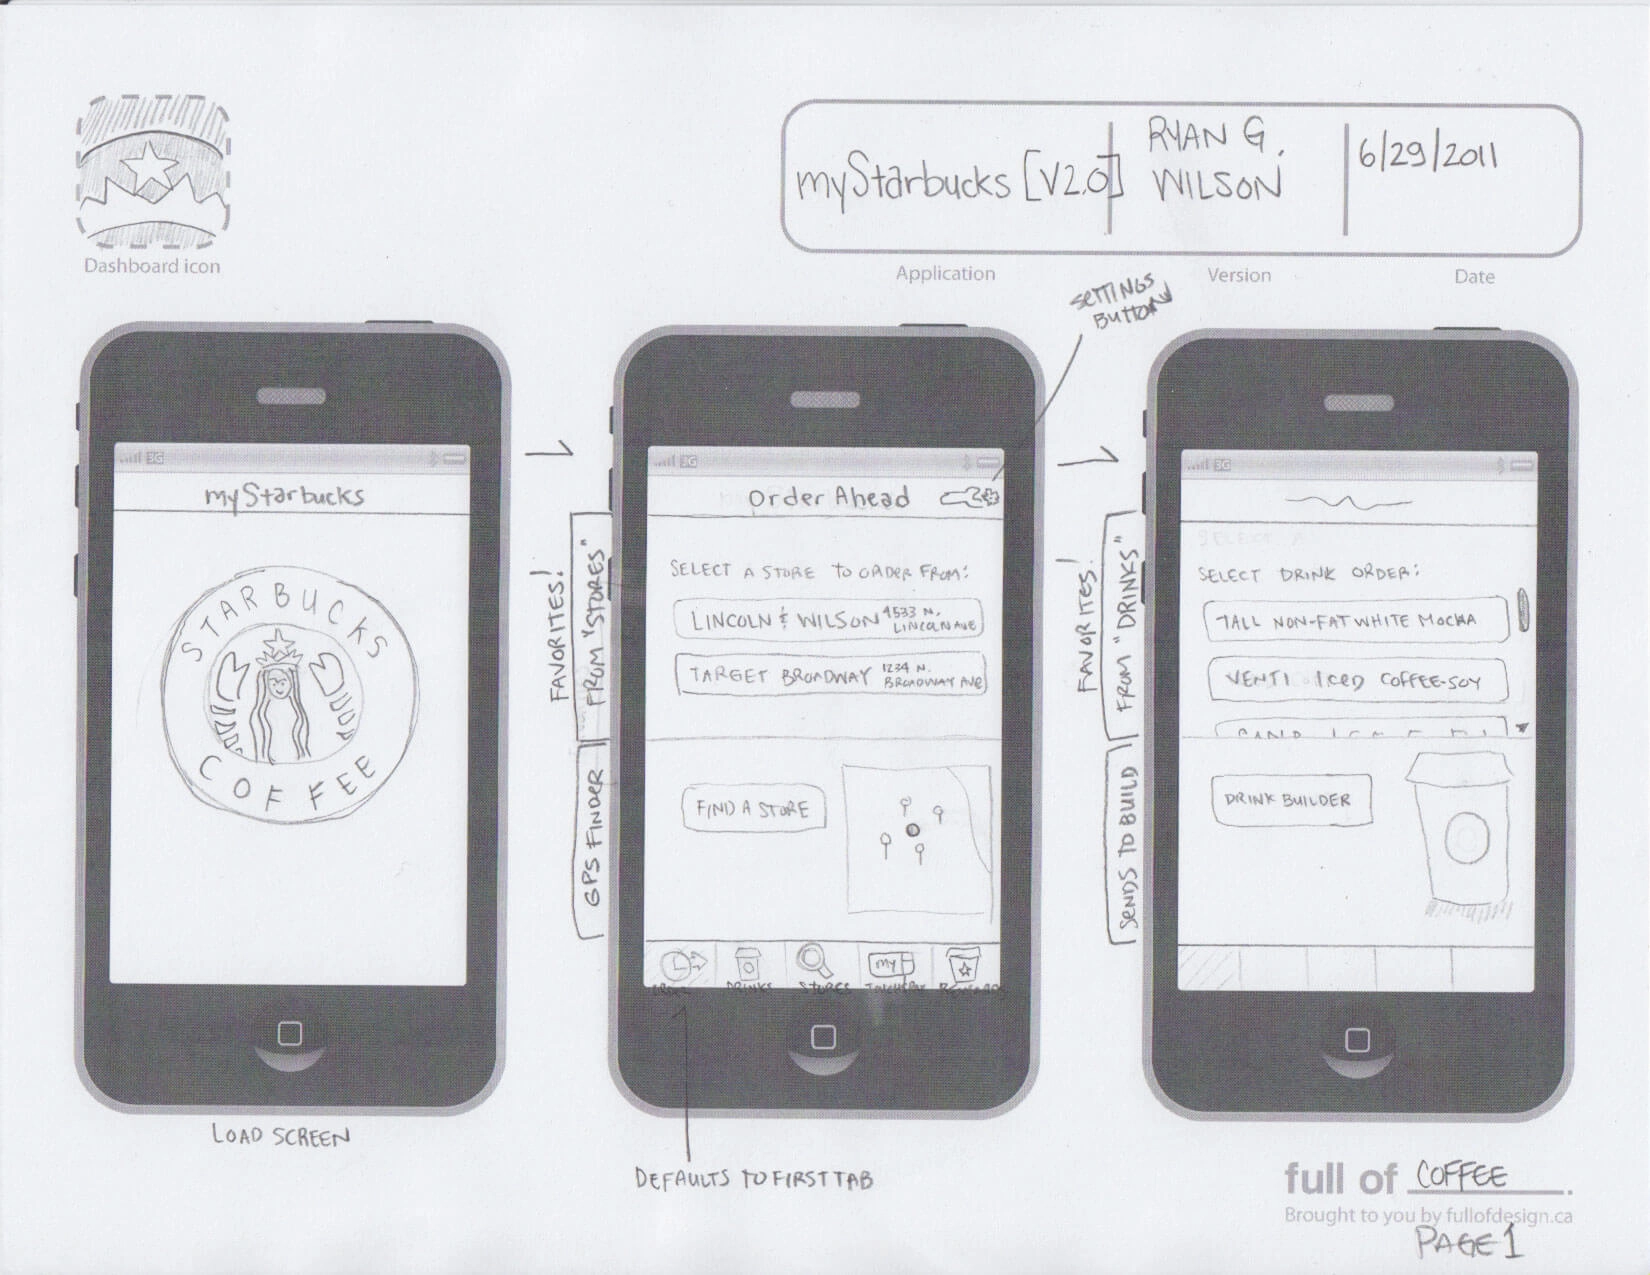 Dashboard icon
myStarbucks [V2.0]
RYAN G.
WILSON
6/29/2011
Application
Version
Date
SETTINGS
BUTTON
3G
myStarbucks
STARBUCKS
COFFEE
LOAD SCREEN
FAVORITES!
FROM "STORES"
GPS FINDER
3G
Order Ahead
SELECT A STORE TO ORDER FROM:
LINCOLN & WILSON 4533 N.
LINCOLN AVE
TARGET BROADWAY 1234 N.
BROADWAY AVE
FIND A STORE
my
ORDER DRINKS STORES TOUCHPAY REWARDS
DEFAULTS TO FIRST TAB
FAVORITES!
FROM "DRINKS"
SENDS TO BUILD
3G
SELECT DRINK ORDER:
TALL NON-FAT WHITE MOCHA
VENTI ICED COFFEE-SOY
DRINK BUILDER
full of COFFEE.
Brought to you by fullofdesign.ca
PAGE 1